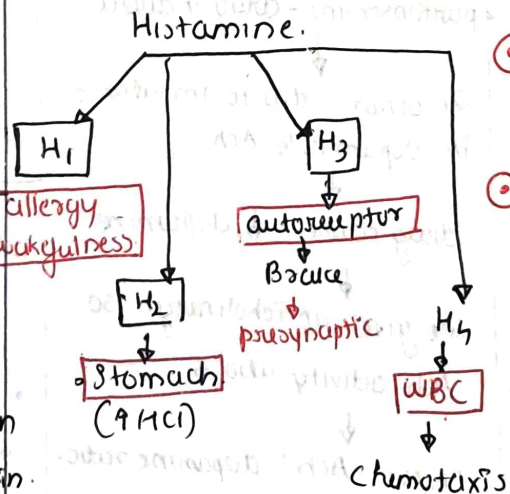 Histamine.
H1
allergy
wakefulness
H2
Stomach
(↑ HCl)
H3
autoreceptor
presynaptic
H4
WBC
Chemotaxis